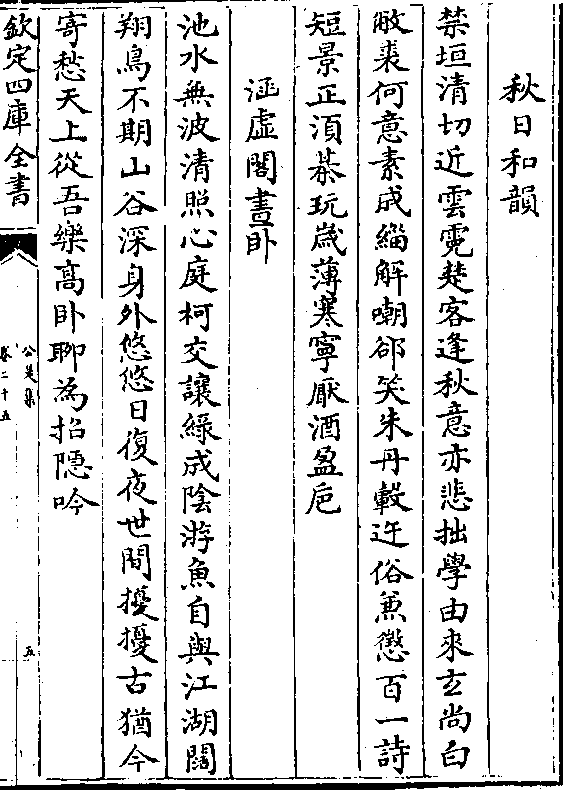 秋日和韻
禁垣清切近雲霓楚客逢秋意亦悲拙學由來玄尚白
敝裘何意素成緇解嘲郤笑朱丹轂迕俗兼懲百一詩
短景正須棊玩歲薄寒寧厭酒盈巵
涵虛閣晝卧
池水無波清照心庭柯交讓綠成陰游魚自與江湖闊
翔鳥不期山谷深身外悠悠日復夜世間擾擾古猶今
寄愁天上從吾樂高卧聊為招隱吟
欽定四庫全書
公是集
卷二十五
五